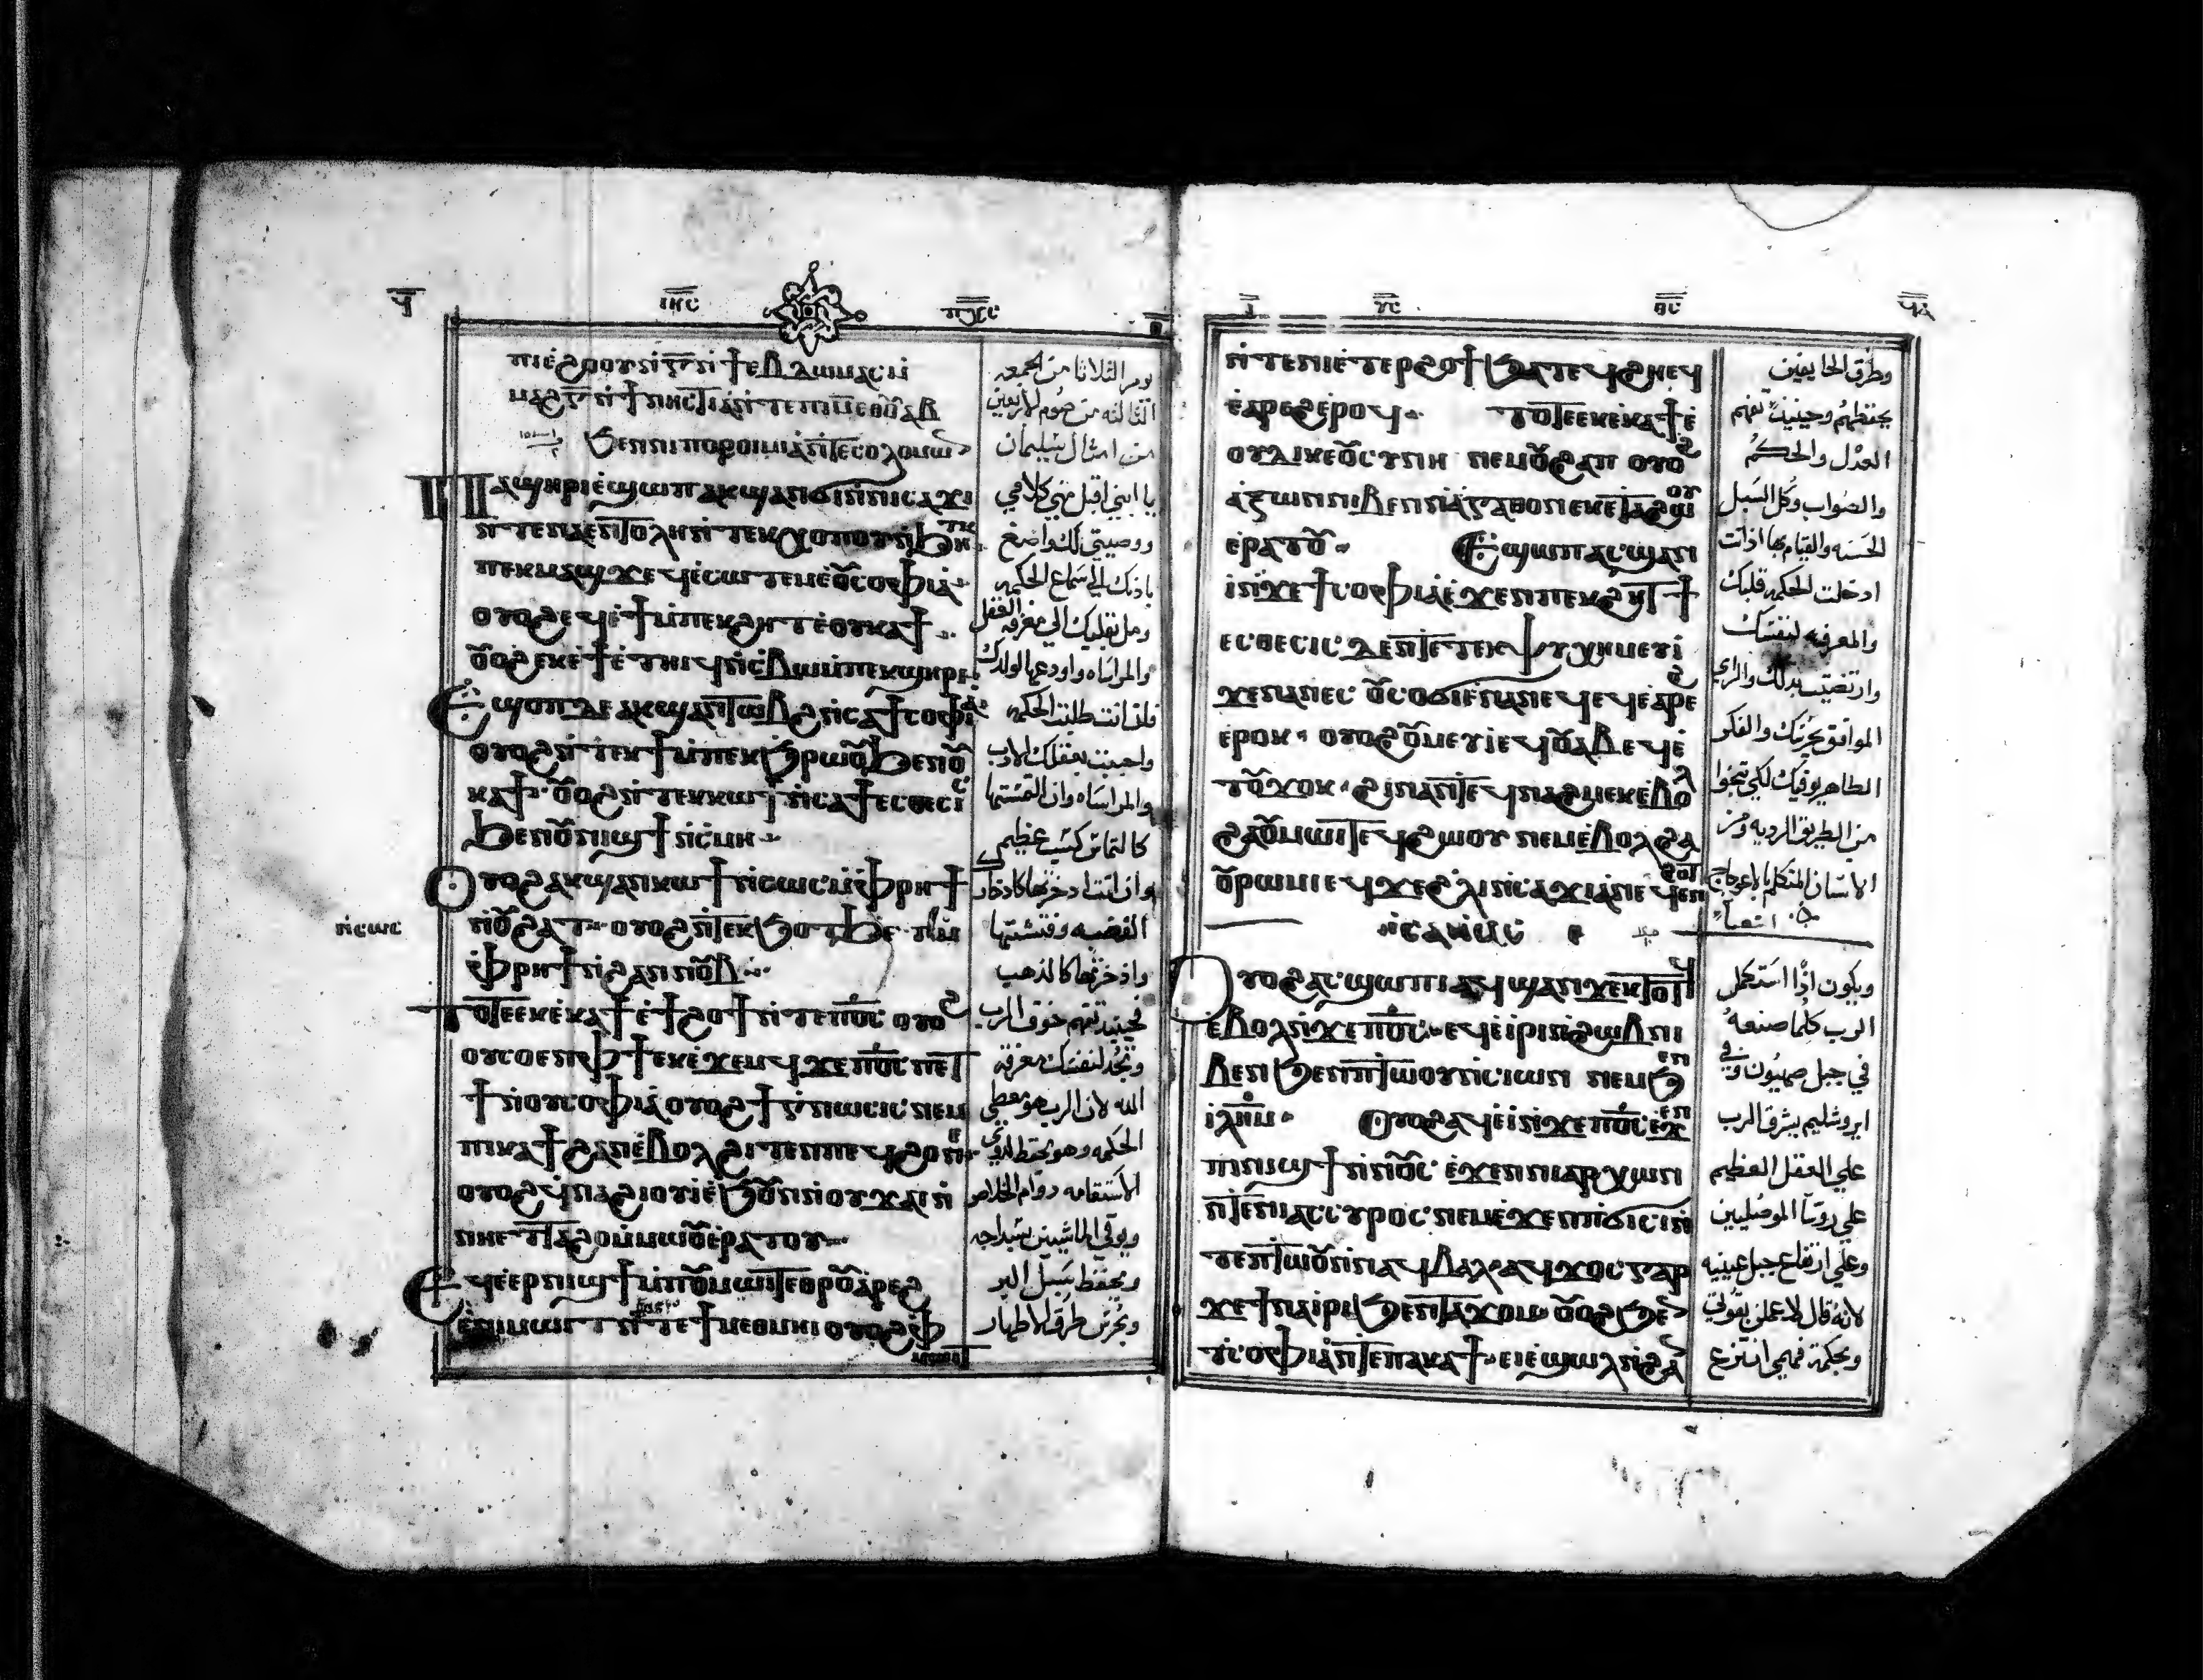 ϥ̅ ⲓⲏ̅ⲥ ⲡⲭ̅ⲥ
ⲡⲓⲉ̀ϩⲟⲟⲩ ⲛ̀ⲅ̅ ⲛ̀ϯⲉⲃⲇⲱⲙⲁⲥ ⲙ̀
ⲙⲁϩⲅ̅ ⲛ̀ϯⲛⲏⲥⲧⲓⲁ̀ ⲛ̀ⲧⲉⲡⲓⲙ̅ ⲉⲑⲟⲩⲁⲃ
ϧⲉⲛⲛⲓⲡⲟⲣⲟⲓⲙⲓⲁ̀ ⲛ̀ⲧⲉⲥⲟⲗⲟⲙⲱⲛ
ⲡⲁϣⲏⲣⲓ ⲉ̀ϣⲱⲡ ⲁⲕϣⲁⲛϭⲓ ⲛ̀ⲛⲓⲥⲁϫⲓ
ⲛ̀ⲧⲉⲛⲁⲉⲛⲧⲟⲗⲏ ⲛ̀ⲧⲉⲕⲭⲟⲡⲟⲩ ⲛ̀ϧⲏⲧⲕ
ⲡⲉⲕⲙⲁϣϫ ⲉϥⲉ̀ⲥⲱⲧⲉⲙ ⲉ̀ⲟⲩⲥⲟⲫⲓⲁ̀
ⲟⲩⲟϩ ⲉϥⲉ̀ϯ ⲙ̀ⲡⲉⲕϩⲏⲧ ⲉ̀ⲟⲩⲕⲁϯ
ⲟⲩⲟϩ ⲉⲕⲉ̀ϯ ⲉ̀ⲧⲏⲓϥ ⲛ̀ⲥⲃⲱ ⲙ̀ⲡⲉⲕϣⲏⲣⲓ
ⲉ̀ϣⲱⲡ ⲇⲉ ⲁⲕϣⲁⲛⲧⲱⲃϩ ⲛ̀ⲥⲁϯⲥⲟⲫⲓⲁ̀
ⲟⲩⲟϩ ⲛ̀ⲧⲉⲕϯ ⲙ̀ⲡⲉⲕϧⲣⲱⲟⲩ ϧⲉⲛⲟⲩ
ⲕⲁϯ ⲟⲩⲟϩ ⲛ̀ⲧⲉⲕⲕⲱϯ ⲛ̀ⲥⲁϯⲉⲥⲑⲉⲥⲓⲥ
ϧⲉⲛⲟⲩⲛⲓϣϯ ⲛ̀ⲥⲙⲏ
ⲟⲩⲟϩ ⲁⲕϣⲁⲛⲕⲱϯ ⲛ̀ⲥⲱⲥ ⲙ̀ⲫⲣⲏϯ
ⲛ̀ⲟⲩϩⲁⲧ ⲟⲩⲟϩ ⲛ̀ⲧⲉⲕϧⲟⲧϧⲉⲧ ⲙ̀
ⲛ̀ⲥⲱⲥ
ⲫⲣⲏϯ ⲛ̀ϩⲁⲛⲛⲟⲩⲃ
ⲧⲟⲧⲉ ⲉⲕⲉ̀ⲕⲁϯ ⲉ̀ϯϩⲟϯ ⲛ̀ⲧⲉⲡⲟ̅ⲥ ⲟⲩⲟϩ
ⲟⲩⲥⲟⲉⲛ ⲫϯ ⲉⲕⲉ̀ϫⲉⲙϥ ϫⲉ ⲡⲟ̅ⲥ ⲡⲉⲧ
ϯ ⲛ̀ⲟⲩⲥⲟⲫⲓⲁ̀ ⲟⲩⲟϩ ϯⲅⲛⲱⲥⲓⲥ ⲛⲉⲙ
ⲡⲓⲕⲁϯ ϩⲁⲛⲉ̀ⲃⲟⲗ ϩⲓⲧⲉⲛ ⲡⲉϥϩⲟ ⲛⲉ
ⲟⲩⲟϩ ϥⲛⲁϩⲓⲟⲩⲓ̀ ⲉ̀ϧⲟⲩⲛ ⲛ̀ⲟⲩϫⲁⲓ ⲛ̀
ⲛⲏⲉⲧⲧⲁϩⲟ ⲙ̀ⲙⲱⲟⲩ ⲉ̀ⲣⲁⲧⲟⲩ
ⲉϥⲉ̀ⲉⲣⲛⲓϣϯ ⲙ̀ⲡⲟⲩⲙⲱⲓⲧ ⲉⲑⲣⲟⲩⲁ̀ⲣⲉϩ
ⲉ̀ⲛⲓⲙⲱⲓⲧ ⲛ̀ⲧⲉϯⲙⲉⲑⲙⲏⲓ ⲟⲩⲟϩ ⲫ
ⲙⲱⲓⲧ
يوم الثلاثا من الجمعه
الثالثه من صوم الاربعين
من امثال سليمان
يا ابني اقبل مني كلامي
ووصيتي لك واضغ
باذنك الي سماع الحكمه
ومل بقلبك الي معرفة العقل
والمراساه واودعها لولدك
فاذا انت طلبت الحكمه
واجبت بعقلك الادب
والمراساه وان التمستها
كالتماس كسب عظيم
وان انت ادخرتها كادخار
الفضه وفتشتها
واذخرتها كالذهب
فحينيد تفهم خوف الرب
وتجد لنفسك معرفة
الله لان الرب هو معطي
الحكمه وهو يحفظ لذوي
الاستقامه دوام الخلاص
ويوقي الماشيين بسداجه
ويحفظ سبيل البر
ويحرس طرق الاطهار
ⲓ̅ ⲩ̅ⲥ ⲑ̅ⲥ ϥ̅ⲁ
ⲛ̀ⲧⲉⲛⲓⲉⲧⲉⲣϩⲟϯ ϧⲁⲧⲉϥϩⲏ ⲉϥ
ⲉ̀ⲁⲣⲉϩ ⲉ̀ⲣⲟϥ ⲧⲟⲧⲉ ⲉⲕⲉ̀ⲕⲁϯ ⲉ̀
ⲟⲩⲇⲓⲕⲉⲟⲥⲩⲛⲏ ⲛⲉⲙ ⲟⲩϩⲁⲡ ⲟⲩⲟϩ
ⲁ̀ⲝⲱⲛ ⲛⲓⲃⲉⲛ ⲛ̀ⲁ̀ⲅⲁⲑⲟⲛ ⲉⲕⲉ̀ⲧⲁϩⲱⲟⲩ
ⲉ̀ⲣⲁⲧⲟⲩ ⲉ̀ϣⲱⲡ ⲁⲥϣⲁⲛ
ⲓ̀ ⲛ̀ϫⲉϯⲥⲟⲫⲓⲁ̀ ⲉ̀ϫⲉⲛⲡⲉⲕϩⲏⲧ ϯ
ⲉⲥⲑⲉⲥⲓⲥ ⲇⲉ ⲛ̀ⲧⲉⲧⲉⲕⲯⲩⲭⲏ ⲙⲉⲩⲓ̀
ϫⲉ ⲛⲁⲛⲉⲥ ⲟⲩⲥⲟϭⲛⲓ ⲉ̀ⲛⲁⲛⲉϥ ⲉϥⲉ̀ⲁⲣⲉϩ
ⲉ̀ⲣⲟⲕ ⲟⲩⲟϩ ⲟⲩⲙⲉⲩⲓ̀ ⲉϥⲟⲩⲁⲃ ⲉϥⲉ̀
ⲧⲟⲩϫⲟⲕ ϩⲓⲛⲁ ⲛ̀ⲧⲉϥⲛⲁϩⲙⲉⲕ ⲉ̀ⲃⲟⲗ
ϩⲁⲟⲩⲙⲱⲓⲧ ⲉϥϩⲱⲟⲩ ⲛⲉⲙ ⲉ̀ⲃⲟⲗ ϩⲁ
ⲟⲩⲣⲱⲙⲓ ⲉϥϫⲉϩⲗⲓ ⲛ̀ⲥⲁϫⲓ ⲁⲛ ⲉϥⲉⲛϩⲟⲧ
ⲏⲥⲁⲏⲁⲥ
ⲟⲩⲟϩ ⲁⲥϣⲱⲡⲓ ⲁϥϣⲁⲛϫⲉⲕⲧⲟⲧϥ
ⲉ̀ⲃⲟⲗ ⲛ̀ϫⲉⲡⲟ̅ⲥ ⲉϥⲉ̀ⲓⲣⲓ ⲛ̀ϩⲱⲃ ⲛⲓ
ⲃⲉⲛ ϧⲉⲛⲡⲧⲱⲟⲩ ⲛ̀ⲥⲓⲱⲛ ⲛⲉⲙ ϧⲉⲛ
ⲓ̀ⲗ̅ⲏ̅ⲙ ⲟⲩⲟϩ ⲁϥⲉ̀ⲓ̀ ⲛ̀ϫⲉⲡⲟ̅ⲥ ⲉ̀ϫⲉⲛ
ⲡⲓⲛⲓϣϯ ⲛ̀ⲛⲟⲩⲥ ⲉ̀ϫⲉⲛ ⲛⲓⲁⲣⲭⲱⲛ
ⲛ̀ⲧⲉⲛⲓⲁⲥⲥⲩⲣⲟⲥ ⲛⲉⲙ ⲉ̀ϫⲉⲛ ⲡϭⲓⲥⲓ ⲛ̀
ⲧⲉⲡⲱⲟⲩ ⲛ̀ⲛⲁϥⲃⲁⲗ ⲁϥϫⲟⲥ ⲅⲁⲣ
ϫⲉ ϯⲛⲁⲓⲣⲓ ϧⲉⲛⲧⲁϫⲟⲙ ⲟⲩⲟϩ ϧⲉⲛ
ⲧⲥⲟⲫⲓⲁ̀ ⲛ̀ⲧⲉⲡⲁⲕⲁϯ ⲉⲓⲉ̀ϣⲱⲗ ⲛ̀ϩⲁⲛ
وطرق الخايفين
يحفظهم وحينيذ تفهم
العدل والحكم
والصواب وكل السبل
الحسنه والقيام بها اذا اتت
ادخلت الحكمه قلبك
والمعرفه لنفسك
وارتضيت بذلك والراي
الموافق يحرسك والفكر
الطاهر يوقيك لكي تنجوا
من الطريق الرديه ومن
الانسان المتكلم بالاعوجاج
ويكون اذا استكمل
الرب كلما صنعه
في جبل صهيون وفي
ايروشليم يشرق الرب
علي العقل العظيم
علي روسا الموصليين
وعلي ارتفاع جبل عينيه
لانه قال لاعملن بقوتي
وبحكمة فهمي انتزع